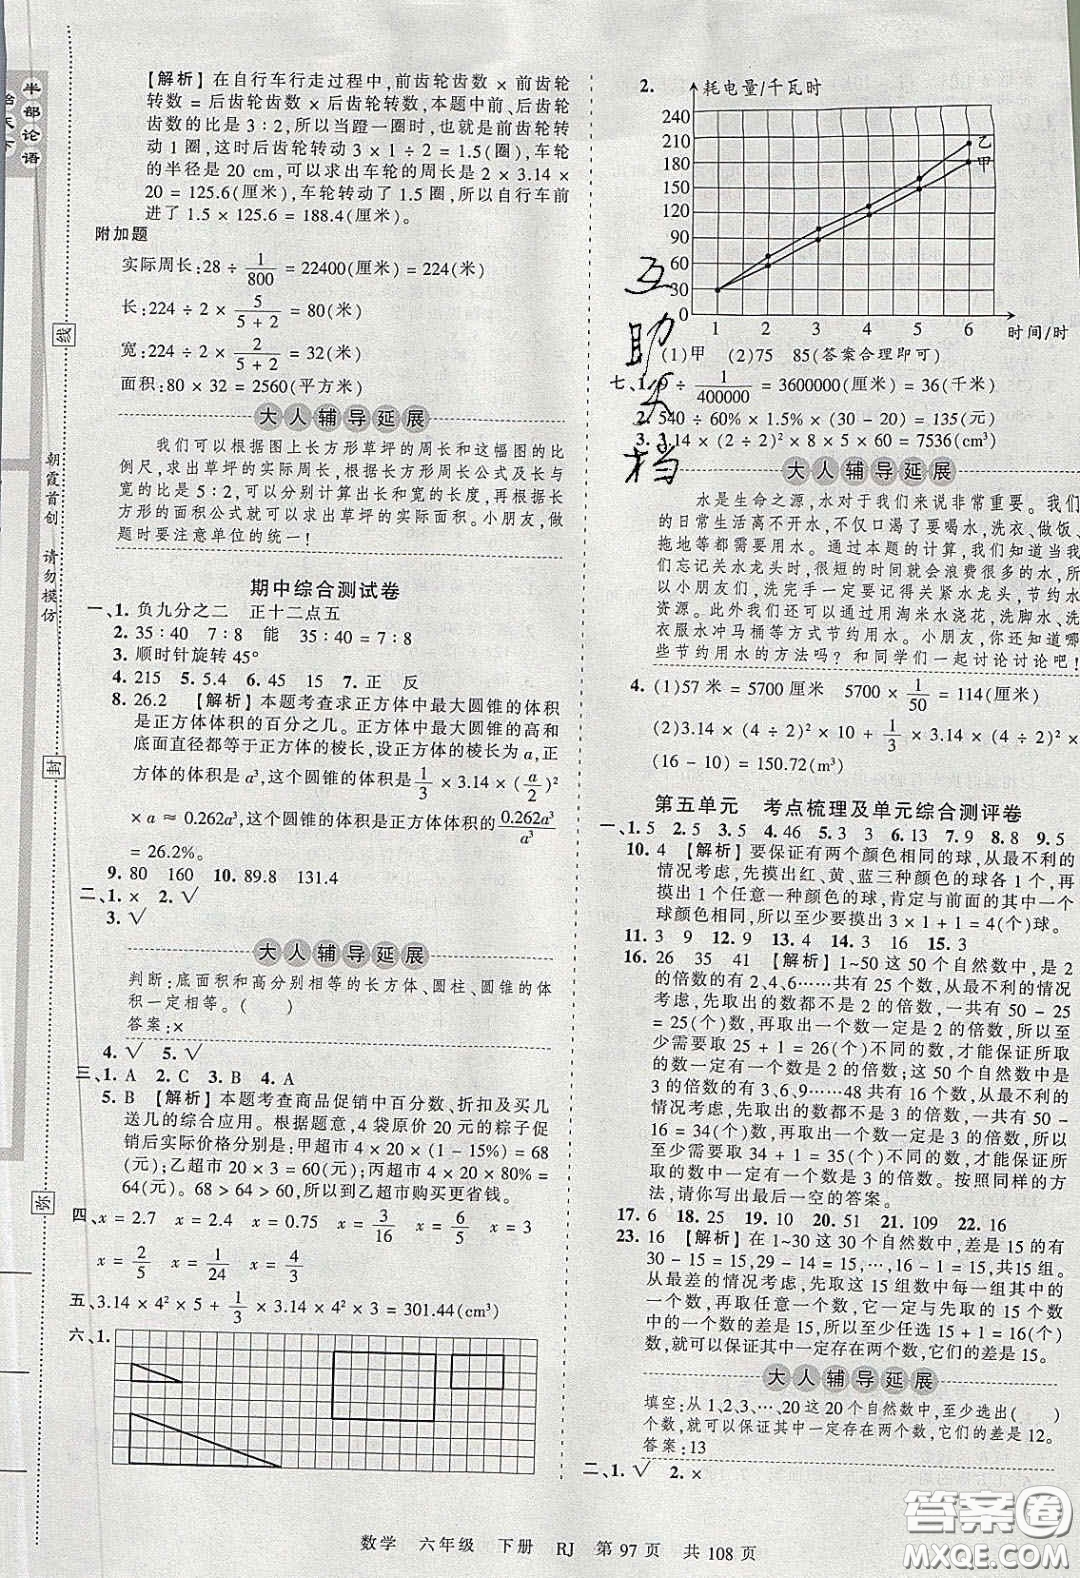 半部论语
[解析]在自行车行走过程中,前齿轮齿数×前齿轮
转数=后齿轮齿数×后齿轮转数,本题中前、后齿轮
齿数的比是3∶2,所以当蹬一圈时,前齿轮转
动1圈,后齿轮转动3÷2=1.5(圈),车轮
的半径是20 cm,可以求出车轮的周长2×3.14×
20=125.6(厘米),车轮转动了1.5圈,自行车前
进了1.5×125.6=188.4(厘米)。
附加题
实际周长:28÷1/800=22400(厘米)=224(米)
长:224÷2×5/(5+2)=80(米)
宽:224÷2×2/(5+2)=32(米)
面积:80×32=2560(平方米)
大人辅导延展
我们可以根据图上长方形草坪的周长和这幅图的比
例尺,求出草坪的实际周长,根据长方形周长公式及长与
宽的比是5∶2,可以分别计算出长和宽的长度,再根据长
方形的面积公式就可以求出草坪的实际面积。小朋友,做
题时要注意单位的统一!
期中综合测试卷
一、1.负九分之二 正十二点五
2.35∶40 7∶8 能 35∶40=7∶8
3.顺时针旋转45°
4.215 5.5.4 6.45 15 7.正 反
8.26.2 [解析]本题考查求正方体中最大圆锥的体积
是正方体体积的百分之几。正方体中最大圆锥的高和
底面直径都等于正方体的棱长,设正方体的棱长为a,正
方体的体积是a³,这个圆锥的体积是1/3×3.14×(a/2)²
×a≈0.262a³,这个圆锥的体积是正方体体积的0.262a³/a³
=26.2%。
9.80 160 10.89.8 131.4
二、1.× 2.√
3.√
大人辅导延展
判断:底面积和高分别相等的长方体、圆柱、圆锥的体
积一定相等。( )
答案:×
4.√ 5.√
三、1.A 2.C 3.B 4.A
5.B [解析]本题考查商品促销中百分数、折扣及买几
送几的综合应用。根据题意,4袋原价20元的粽子促
销后实际价格分别是:甲超市4×20×(1-15%)=68
(元);乙超市20×(4-1)=60(元);丙超市4×20×80%=
64(元)。68>64>60,所以到乙超市购买更省钱。
四、x=2.7 x=2.4 x=0.75 x=3/16 x=6/5 x=3
x=2/5 x=7/24 x=4/3
五、3.14×4²×5+1/3×3.14×4²×3=301.44(cm³)
六、1.
2. 耗电量/千瓦时
240
210
180
150
120
90
60
30
0
1 2 3 4 5 6 时间/时
乙
甲
(1)甲 (2)75 85(答案合理即可)
七、1.9÷1/400000=3600000(厘米)=36(千米)
2.540÷60%×1.5%×(30-20)=135(元)
3.3.14×(2÷2)²×8×5×60=7536(cm³)
互
助
文
档
大人辅导延展
水是生命之源,水对于我们来说非常重要。我们
的日常生活离不开水,不仅口渴了要喝水,洗衣、做饭、
拖地等都需要用水。通过本题的计算,我们知道当我们
忘记关水龙头时,很短的时间就会浪费很多的水,因此
小朋友们,洗完手一定要记得关紧水龙头,节约水
资源。此外我们还可以用淘米水浇花,洗脚水、洗
衣服水冲马桶等方式节约用水。小朋友,你还有哪
些节约用水的方法吗?和同学们一起讨论讨论吧!
4.(1)57米=5700厘米 5700×1/50=114(厘米)
(2)3.14×(4÷2)²×10+1/3×3.14×(4÷2)²×
(16-10)=150.72(m³)
第五单元 考点梳理及单元综合测评卷
一、1.5 2.5 3.5 4.46 5.3 6.13 7.9 8.8 9.5
10.4 [解析]要保证有两个颜色相同的球,从最不利的
情况考虑,先摸出红、黄、蓝三种颜色的球各1个,再
摸出1个任意一种颜色的球,肯定与前面的其中一个
球颜色相同,所以至少要摸出3×1+1=4(个)球。
11.3 9 12.9 13.4 14.3 16 15.3
16.26 35 41 [解析]1~50这50个自然数中,是2
的倍数的有2、4、6……共有25个数,从最不利的情况
考虑,先取出的数都不是2的倍数,一共有50-25
=25(个)数,再取出一个数一定是2的倍数,所以至
少要取25+1=26(个)不同的数,才能保证所取
的数一定有一个数是2的倍数;这50个数中是
3的倍数的有3、6、9……48共有16个数,从最不利
情况考虑,先取出的数都不是3的倍数,一共有50-
16=34(个)数,再取出一个数一定是3的倍数,所以
至少要取34+1=35(个)不同的数,才能保证所
取的数中一定有一个数是3的倍数。按照同样的方
法,请你写出最后一空的答案。
17.6 18.25 19.10 20.51 21.109 22.16
23.16 [解析]在1~30这30个自然数中,差是15的有
30-15=15,29-14=15,…,16-1=15,共15组。
从最差的情况考虑,先取这15组数中每一组其中的
一个数,再取任意一个数,它一定与先取的15个数
中的一个数的差是15,所以至少任选15+1=16(个)
数,就可以保证其中一定存在两个数,它们的差是15。
大人辅导延展
填空:从1、2、3、…、20这20个自然数中,至少选出( )
个数,就可以保证其中一定存在两个数,它们的差是12。
答案:13
二、1.√ 2.×
线
朝霞首创 请勿模仿
封
弥
数学 六年级 下册 RJ 第97页 共108页
答案圈
MXQE.COM